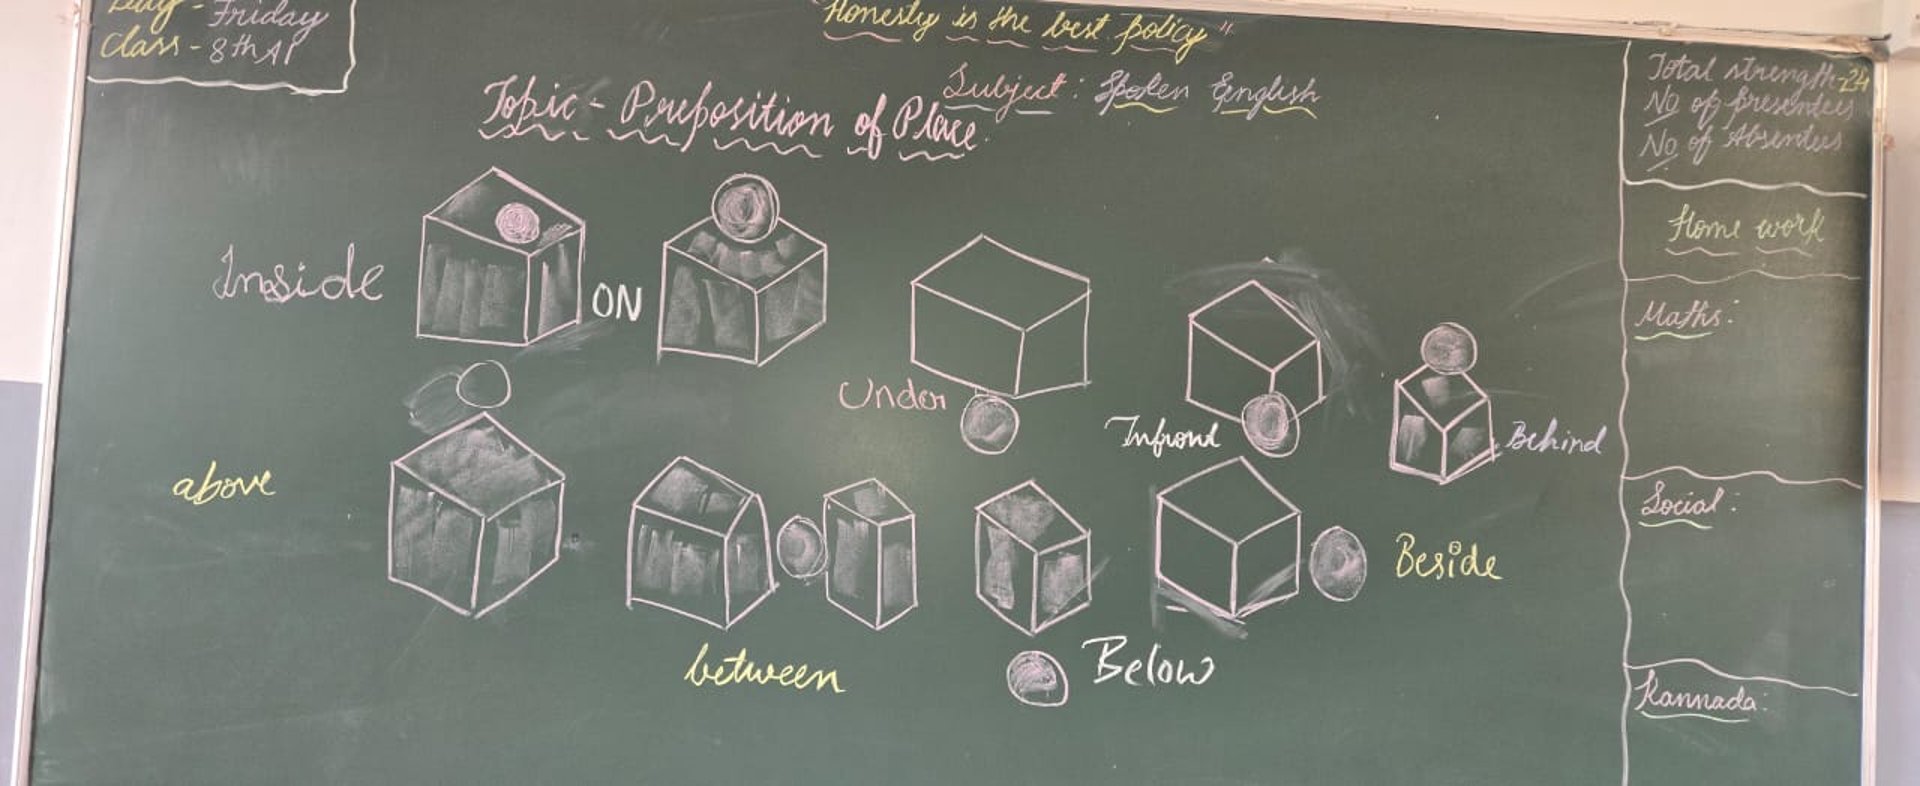 Day - Friday
Class - 8th A1
"Honesty is the best policy"
Subject: Spoken English
Topic - Preposition of Place.
Inside
ON
Under
Infrond
Behind
above
between
Below
Beside
Total strength - 24
No of presentees
No of Absentees
Home work
Maths:
Social:
Kannada: